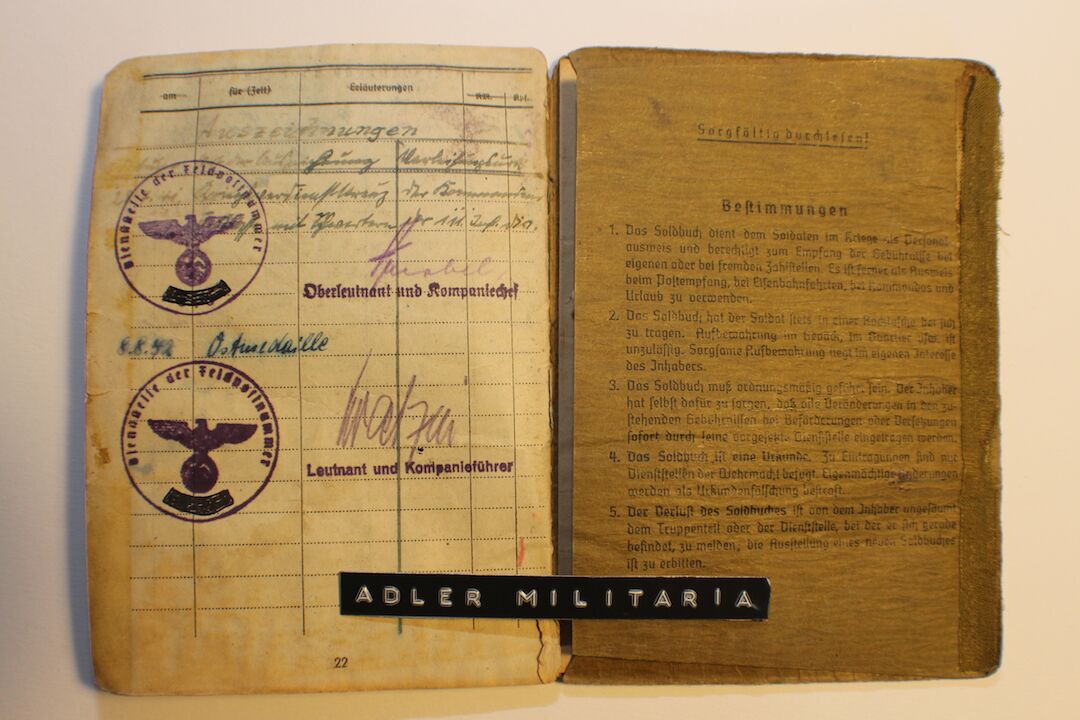 am für (Zeit) Erläuterungen
Auszeichnungen
Verleihungsurk.
Kriegsverdienstkreuz der
mit Schwertern
Dienststelle der Feldpostnummer
Oberleutnant und Kompaniechef
8.8.42 Ostmedaille
Dienststelle der Feldpostnummer
Leutnant und Kompanieführer
22
Sorgfältig durchlesen!
Bestimmungen
1. Das Soldbuch dient dem Soldaten im Kriege als Personal-
ausweis und berechtigt zum Empfang der Gebührnisse bei
eigenen oder bei fremden Zahlstellen. Es ist ferner als Ausweis
beim Postempfang, bei Eisenbahnfahrten, bei Kommandos und
Urlaub zu verwenden.
2. Das Soldbuch hat der Soldat stets in einer Rocktasche bei sich
zu tragen. Aufbewahrung im Gepäck, im Quartier usw. ist
unzulässig. Sorgsame Aufbewahrung liegt im eigenen Interesse
des Inhabers.
3. Das Soldbuch muß ordnungsmäßig geführt sein. Der Inhaber
hat selbst dafür zu sorgen, daß alle Veränderungen in den zu-
stehenden Gebührnissen bei Beförderungen oder Versetzungen
sofort durch seine vorgesetzte Dienststelle eingetragen werden.
4. Das Soldbuch ist eine Urkunde. Zu Eintragungen sind nur
Dienststellen der Wehrmacht befugt. Eigenmächtige Änderungen
werden als Urkundenfälschung bestraft.
5. Der Verlust des Soldbuches ist von dem Inhaber ungesäumt
dem Truppenteil oder der Dienststelle, bei der er sich gerade
befindet, zu melden; die Ausstellung eines neuen Soldbuches
ist zu erbitten.
ADLER MILITARIA